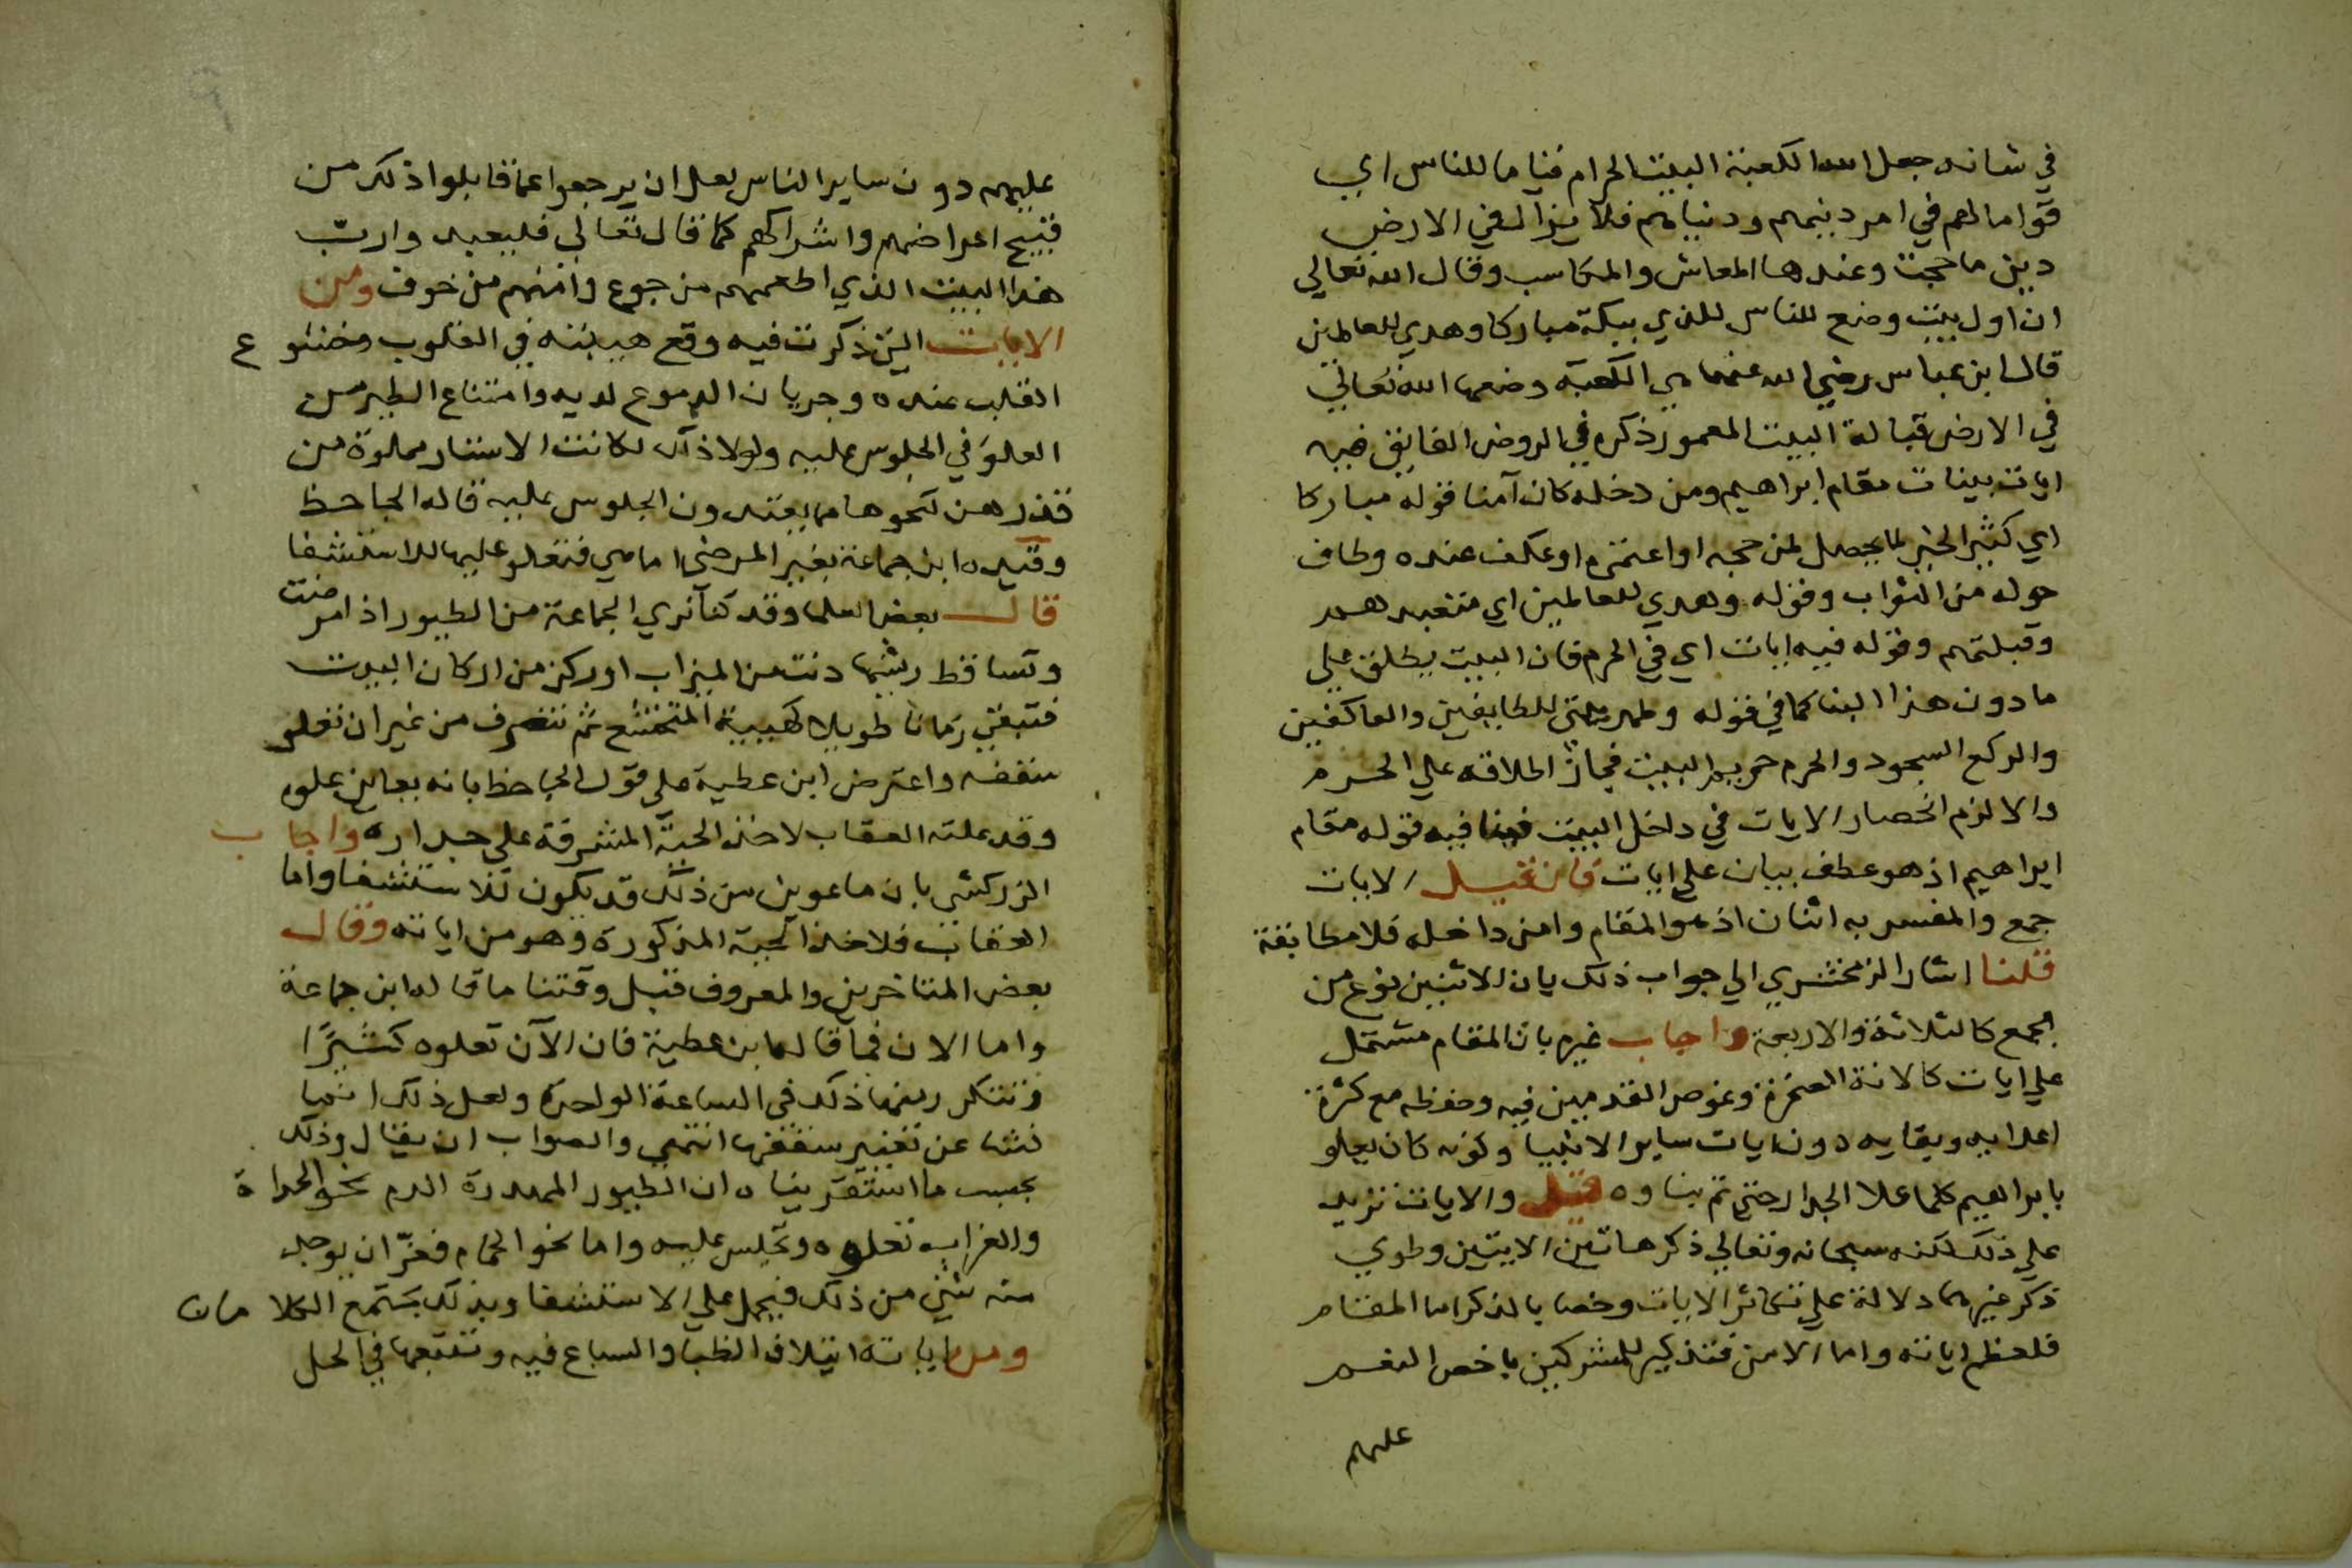 في شانه جعل الله الكعبة البيت الحرام قياما للناس اي
قواما لهم في امر دينهم ودنياهم فلا يزال في الارض
دين ما حجت وعندها المعاش والمكاسب وقال الله تعالي
ان اول بيت وضع للناس للذي ببكة مباركا وهدي للعالمين
قال ابن عباس رضي الله عنهما هي الكعبة وضعها الله تعالي
في الارض قبالة البيت المعمور ذكره في الروض الفايق فيه
ايات بينات مقام ابراهيم ومن دخله كان آمنا قوله مباركا
اي كثير الخير لما يحصل لمن حجه او اعتمره او عكف عنده وطاف
حوله من الثواب وقوله وهدي للعالمين اي متعبدهم
وقبلتهم وقوله فيه ايات اي في الحرم فان البيت يطلق علي
ما دون هذا البنا كما في قوله وطهر بيتي للطايفين والعاكفين
والركع السجود والحرم حريم البيت فجاز اطلاقه علي الحرم
والا لزم انحصار الايات في داخل البيت فيه قوله مقام
ابراهيم اذ هو عطف بيان علي ايات فان قيل الايات
جمع والمفسر به اثنان اذ هو المقام وامن داخله فلا مطابقة
قلنا اشار الزمخشري الي جواب ذلك بان الاثنين نوع من
الجمع كالثلاثة والاربعة واجاب غيره بان المقام مشتمل
علي ايات كالانة الصخرة وغوص القدمين فيه وحفظه مع كثرة
اعدايه وبقايه دون ايات ساير الانبيا وكونه كان يعلو
بابراهيم كلما علا الجدار حتي تم بناوه قيل والايات تزيد
علي ذلك لكنه سبحانه وتعالي ذكر هاتين الايتين وطوي
ذكر غيرهما دلالة علي تكاثر الايات وخصا بالذكر اما المقام
فلعظم اياته واما الامن فتذكير للمشركين باخص النعم
عليهم
عليهم دون ساير الناس لعل ان يرجعوا عما قابلوا ذلك من
قبيح اعراضهم واشراكهم كما قال تعالي فليعبدوا رب
هذا البيت الذي اطعمهم من جوع وآمنهم من خوف ومن
الايات التي ذكرت فيه وقع هيبته في القلوب وخشوع
القلب عنده وجريان الدموع لديه وامتناع الطير من
العلو في الجلوس عليه ولولا ذلك لكانت الاستار مملوة من
قذرهن كنحوها مما يعتدون الجلوس عليه قاله الجاحظ
وقيده ابن جماعة بغير المرضي اما هي فتعلو عليها للاستشفا
قال بعض العلما وقد كنا نري الجماعة من الطيور اذا مرضت
وتساقط ريشها دنت من الميزاب او ركن من اركان البيت
فتبقي زمانا طويلا كهيبة المتخشع ثم تنصرف من غير ان تعلو
سقفه واعترض ابن عطية علي قول الجاحظ بانه يعاين علوه
وقد علته العقاب لاخذ الحية المشرفة علي جداره واجاب
الزركشي بان ما عوين من ذلك قد يكون للاستشفا واما
العقاب فلاخذ الحية المذكورة وهو من اياته وقال
بعض المتاخرين والمعروف قبل وقتنا ما قاله ابن جماعة
واما الان فما قاله ابن عطية فان الآن تعلوه كثيرا
وتتكرر منها ذلك في الساعة الواحدة ولعل ذلك انما
نشا عن تغيير سقفها انتهي والصواب ان يقال وذلك
بحسب ما استقريناه ان الطيور المهدرة الدم نحو الحداة
والغراب تعلوه وتجلس عليه واما نحو الحمام فعز ان يوجد
منه شي من ذلك فيحمل علي الاستشفا وبذلك يجتمع الكلامان
ومن اياته ايتلاف الظبا والسباع فيه وتتبعها في الحل